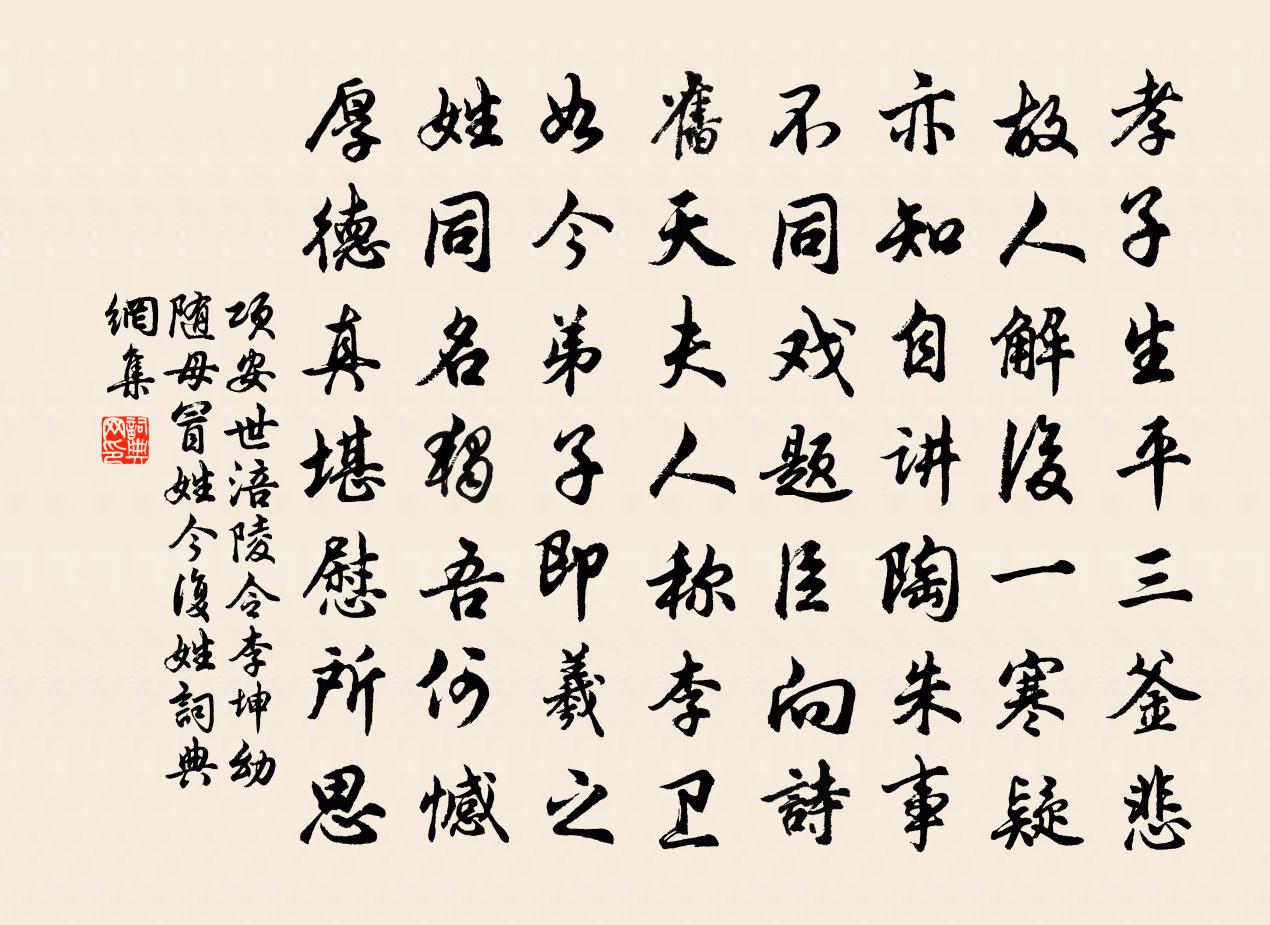 孝子生平三釜悲
故人解後一寒疑
亦知自讲陶朱事
不同戏题臣向詩
舊天夫人称李卫
如今弟子即羲之
姓同名獨吾何憾
厚德真堪慰所思
项安世涪陵令李坤幼
随母冒姓今復姓詞典
網集
詞典网印